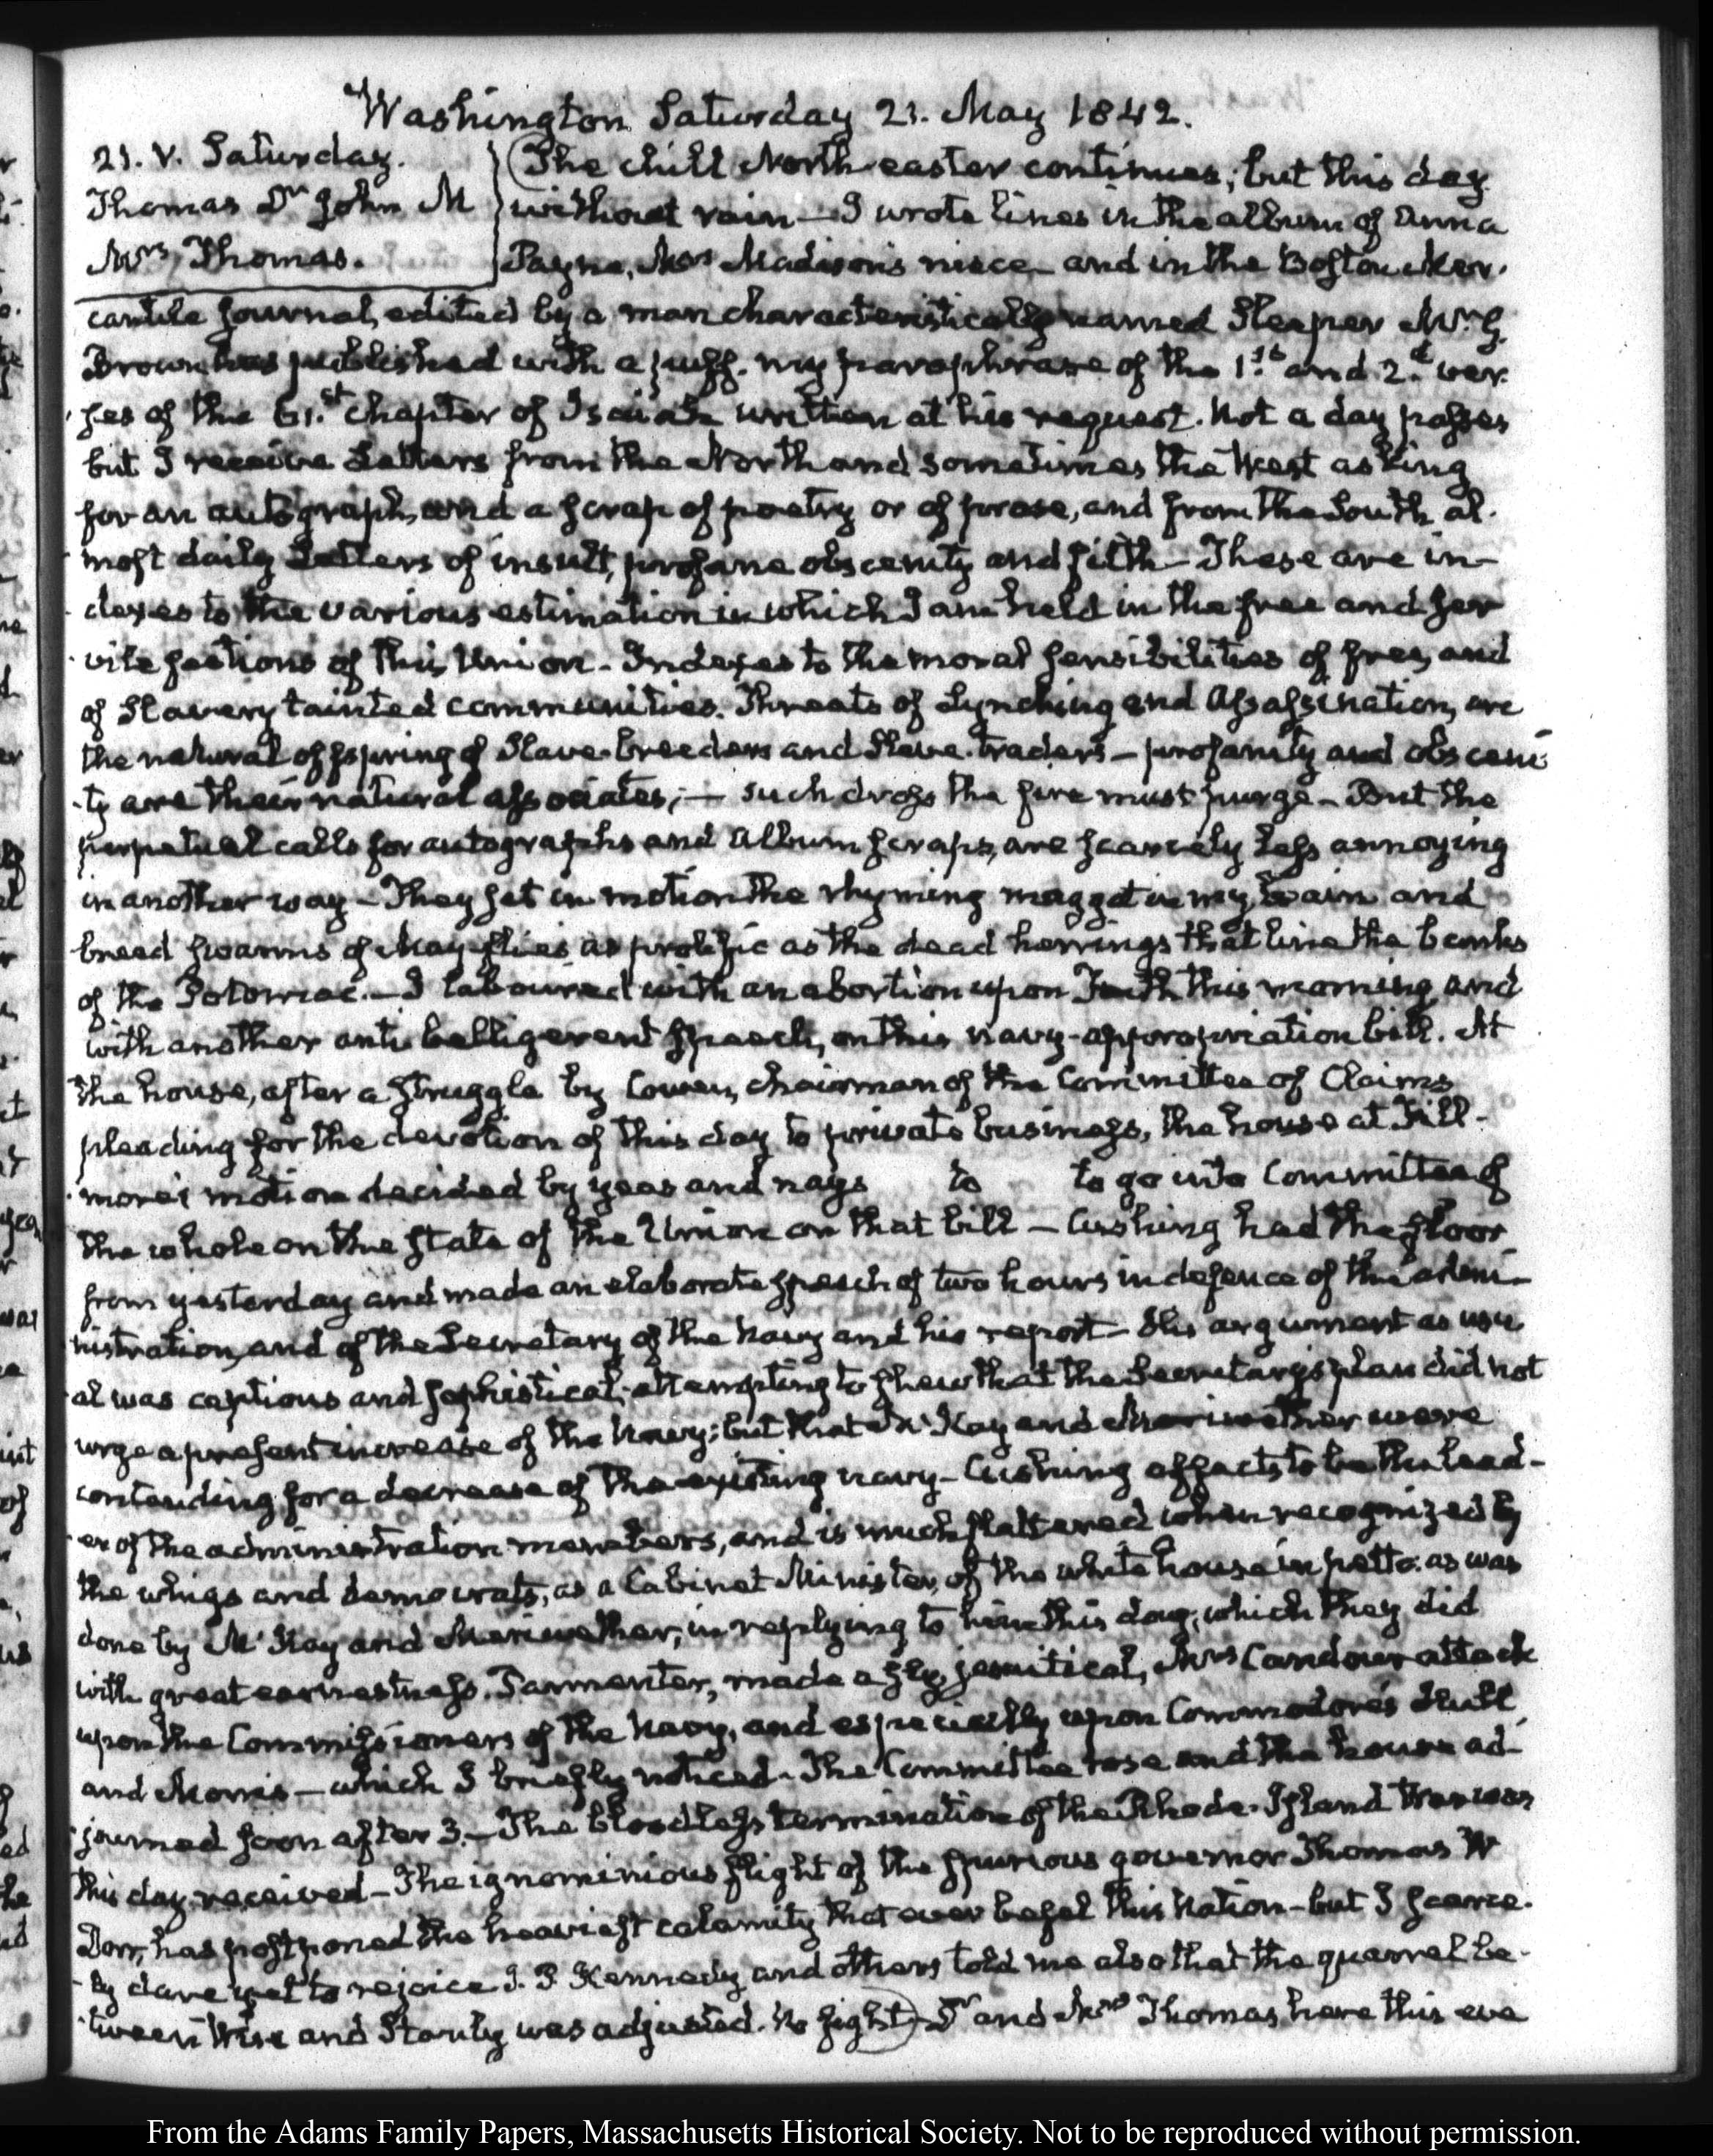 Washington Saturday 21. May 1842.
21. V. Saturday.
Thomas Dr. John M
Mrs. Thomas.
The chill North-easter continues; but this day
without rain—I wrote lines in the album of Anna
Payne, Mrs Madison's niece—and in the Boston Mer-
cantile Journal, edited by a man characteristically named Sleeper Mr. G.
Brown has published with a puff. my paraphrase of the 1.st and 2.d ver-
ses of the 61.st chapter of Isaiah written at his request. Not a day passes
but I receive Letters from the North and sometimes the West asking
for an autograph, and a scrap of poetry or of prose, and from the South al-
most daily Letters of insult, profane obscenity and filth—These are in-
dexes to the various estimation in which I am held in the free and ser
vile sections of this Union—Indexes to the moral sensibilities of free, and
of Slavery tainted communities. Threats of Lynching and Assassination, are
the natural offspring of Slave-breeders and Slave-traders—profanity and obsceni
ty are their natural associates;—such dross the fire must purge—But the
perpetual calls for autographs and Album scraps, are scarcely less annoying
in another way—They set in motion the rhyming maggot in my brain and
breed swarms of May-flies as prolific as the dead herrings that line the banks
of the Potomac.—I laboured with an abortion upon Truth this morning, and
with another anti belligerent speech, on this navy-appropriation bill. At
the house, after a struggle by Cowen, chairman of the Committee of Claims
pleading for the devotion of this day to private business, the house at Fill-
more's motion decided by yeas and nays to to go into Committee of
the whole on the state of the Union on that bill—Cushing had the floor
from yesterday and made an elaborate speech of two hours in defence of the admi-
nistration, and of the Secretary of the Navy and his report—His argument as usu
al was captious and sophistical; attempting to shew that the Secretary's plan did not
urge a present increase of the Navy; but that McKay and Meriwether were
contending for a decrease of the existing navy—Cushing affects to be the lead-
er of the administration members, and is much flattered when recognized by
the whigs and democrats, as a Cabinet Minister, of the white house in petto. as was
done by McKay and Meriwether, in replying to him this day, which they did
with great earnestness. Parmenter, made a sly, jesuitical, Mrs Candour attack
upon the Commissioners of the Navy, and especially upon Commodores Hull
and Morris—which I briefly noticed—The Committee rose and the house ad-
journed soon after 3.—The bloodless termination of the Rhode-Island War was
this day received—The ignominious flight of the spurious governor Thomas W
Dorr, has postponed the heaviest calamity that ever befel this Nation—but I scarce-
ly dare yet to rejoice J. P. Kennedy and others told me also that the quarrel be-
tween Wise and Stanly was adjusted. No fight) Dr and Mrs Thomas here this eve
From the Adams Family Papers, Massachusetts Historical Society. Not to be reproduced without permission.